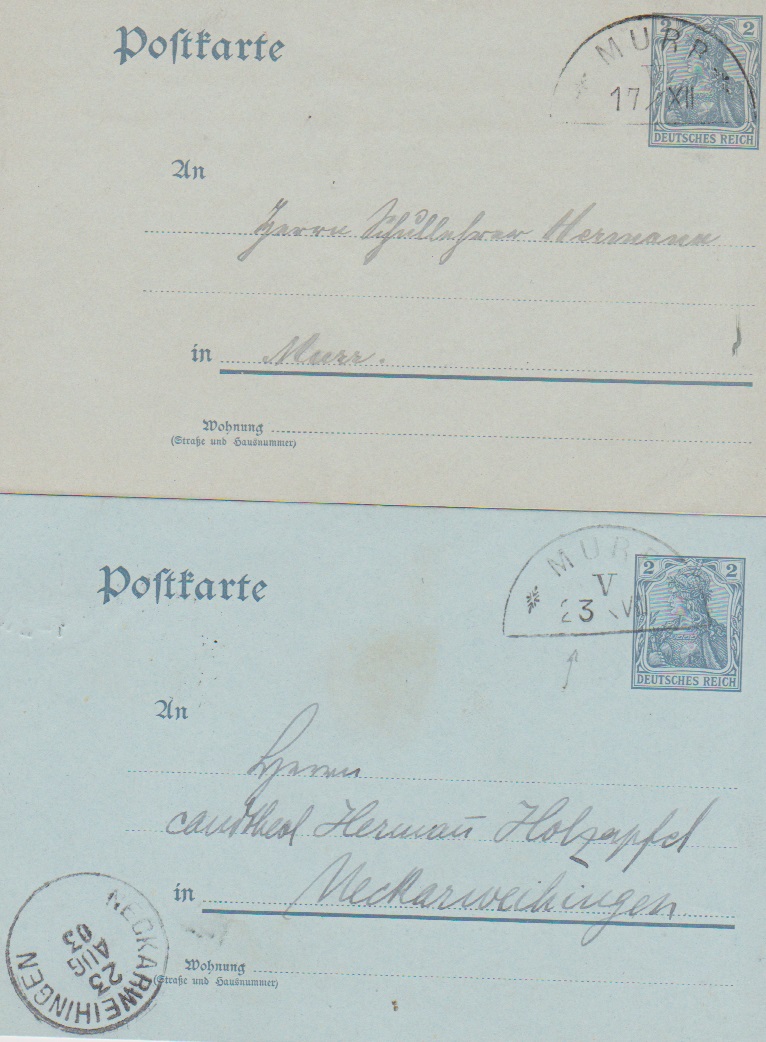 Postkarte
* MURR *
V
17 / XII
2 2
DEUTSCHES REICH
An
Herrn Schullehrer Hermann
in Murr.
Wohnung
(Straße und Hausnummer)
Postkarte
* MURR
V
23 VII
2 2
DEUTSCHES REICH
An
Herrn
candtheol Herman̄ Holzapfel
in Neckarweihingen
Wohnung
(Straße und Hausnummer)
NECKARWEIHINGEN
03